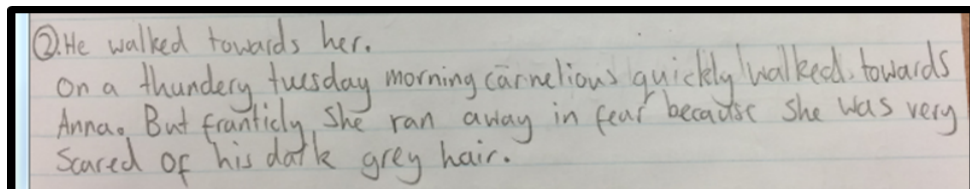 ②.He walked towards her.
On a thundery tuesday morning carnelious quickly walked towards
Anna. But franticly, She ran away in fear because She was very
Scared of his dark grey hair.